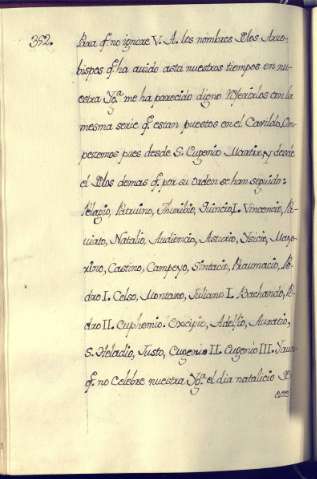 352. Para q̃ no ignore V. A. los nombres de los Arzo-
bispos q̃ ha auido asta nuestros tiempos en nu-
estra Yg.ª me ha parecido digno referirlos con la
mesma serie q̃ estan puestos en el Cavildo, Em-
pezemos pues desde S. Eugenio Martir, y desde
el a los demas q̃ por su orden se ham seguido:
Pelagio, Patruino, Thuribio, Quincio, I. Vincencio, Pa-
ulato, Natalio, Audencio, Asturio, Ysicio, Mayo-
rino, Castino, Campeyo, Sinticio, Praumacio, Pe-
dro I. Celso, Montano, Juliano I. Bachanda, Pe-
dro II. Euphemio. Exsipio, Adelfio, Aurasio,
S. Heladio, Justo, Eugenio II. Eugenio III. Y aun-
q̃ no celebre nuestra Yg.ª el dia natalicio de